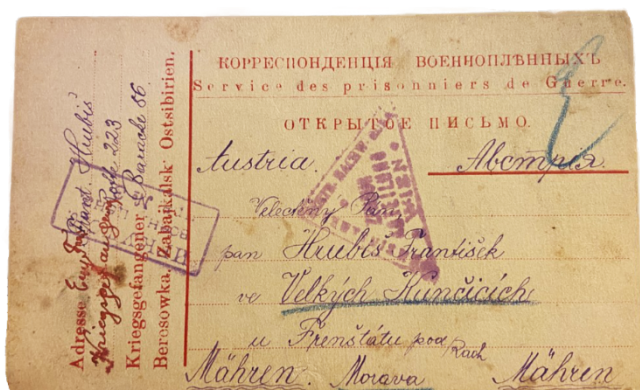 КОРРЕСПОНДЕНЦІЯ ВОЕННОПЛѢННЫХЪ
Service des prisonniers de Guerre.
ОТКРЫТОЕ ПИСЬМО.
Austria. Австрія.
Velectěný Pan,
pan Hrubiš František
ve Velkých Kunčicích
u Frenštátu pod Rach
Mähren. Morava Mähren
Adresse Hrubiš
Kriegsgefangener 223
Kriegsgefangener Baracke 86
Berosowka, Zabajkalsk. Ostsibirien.